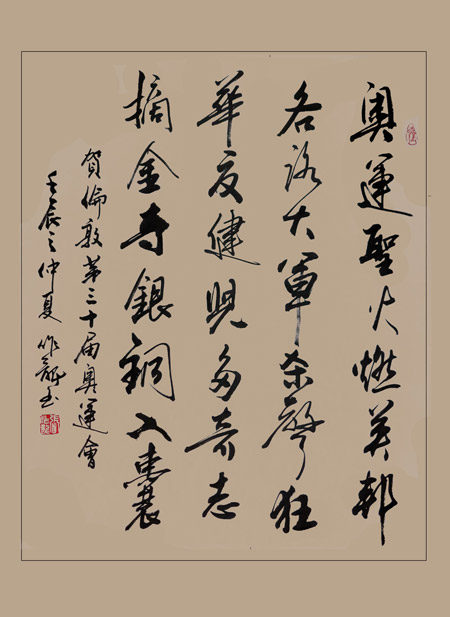 奥運聖火燃英邦
各路大軍杀聲狂
華夏健兒多奇志
摘金夺銀銅入囊
賀倫敦第三十届奥運會
壬辰之仲夏 作龍